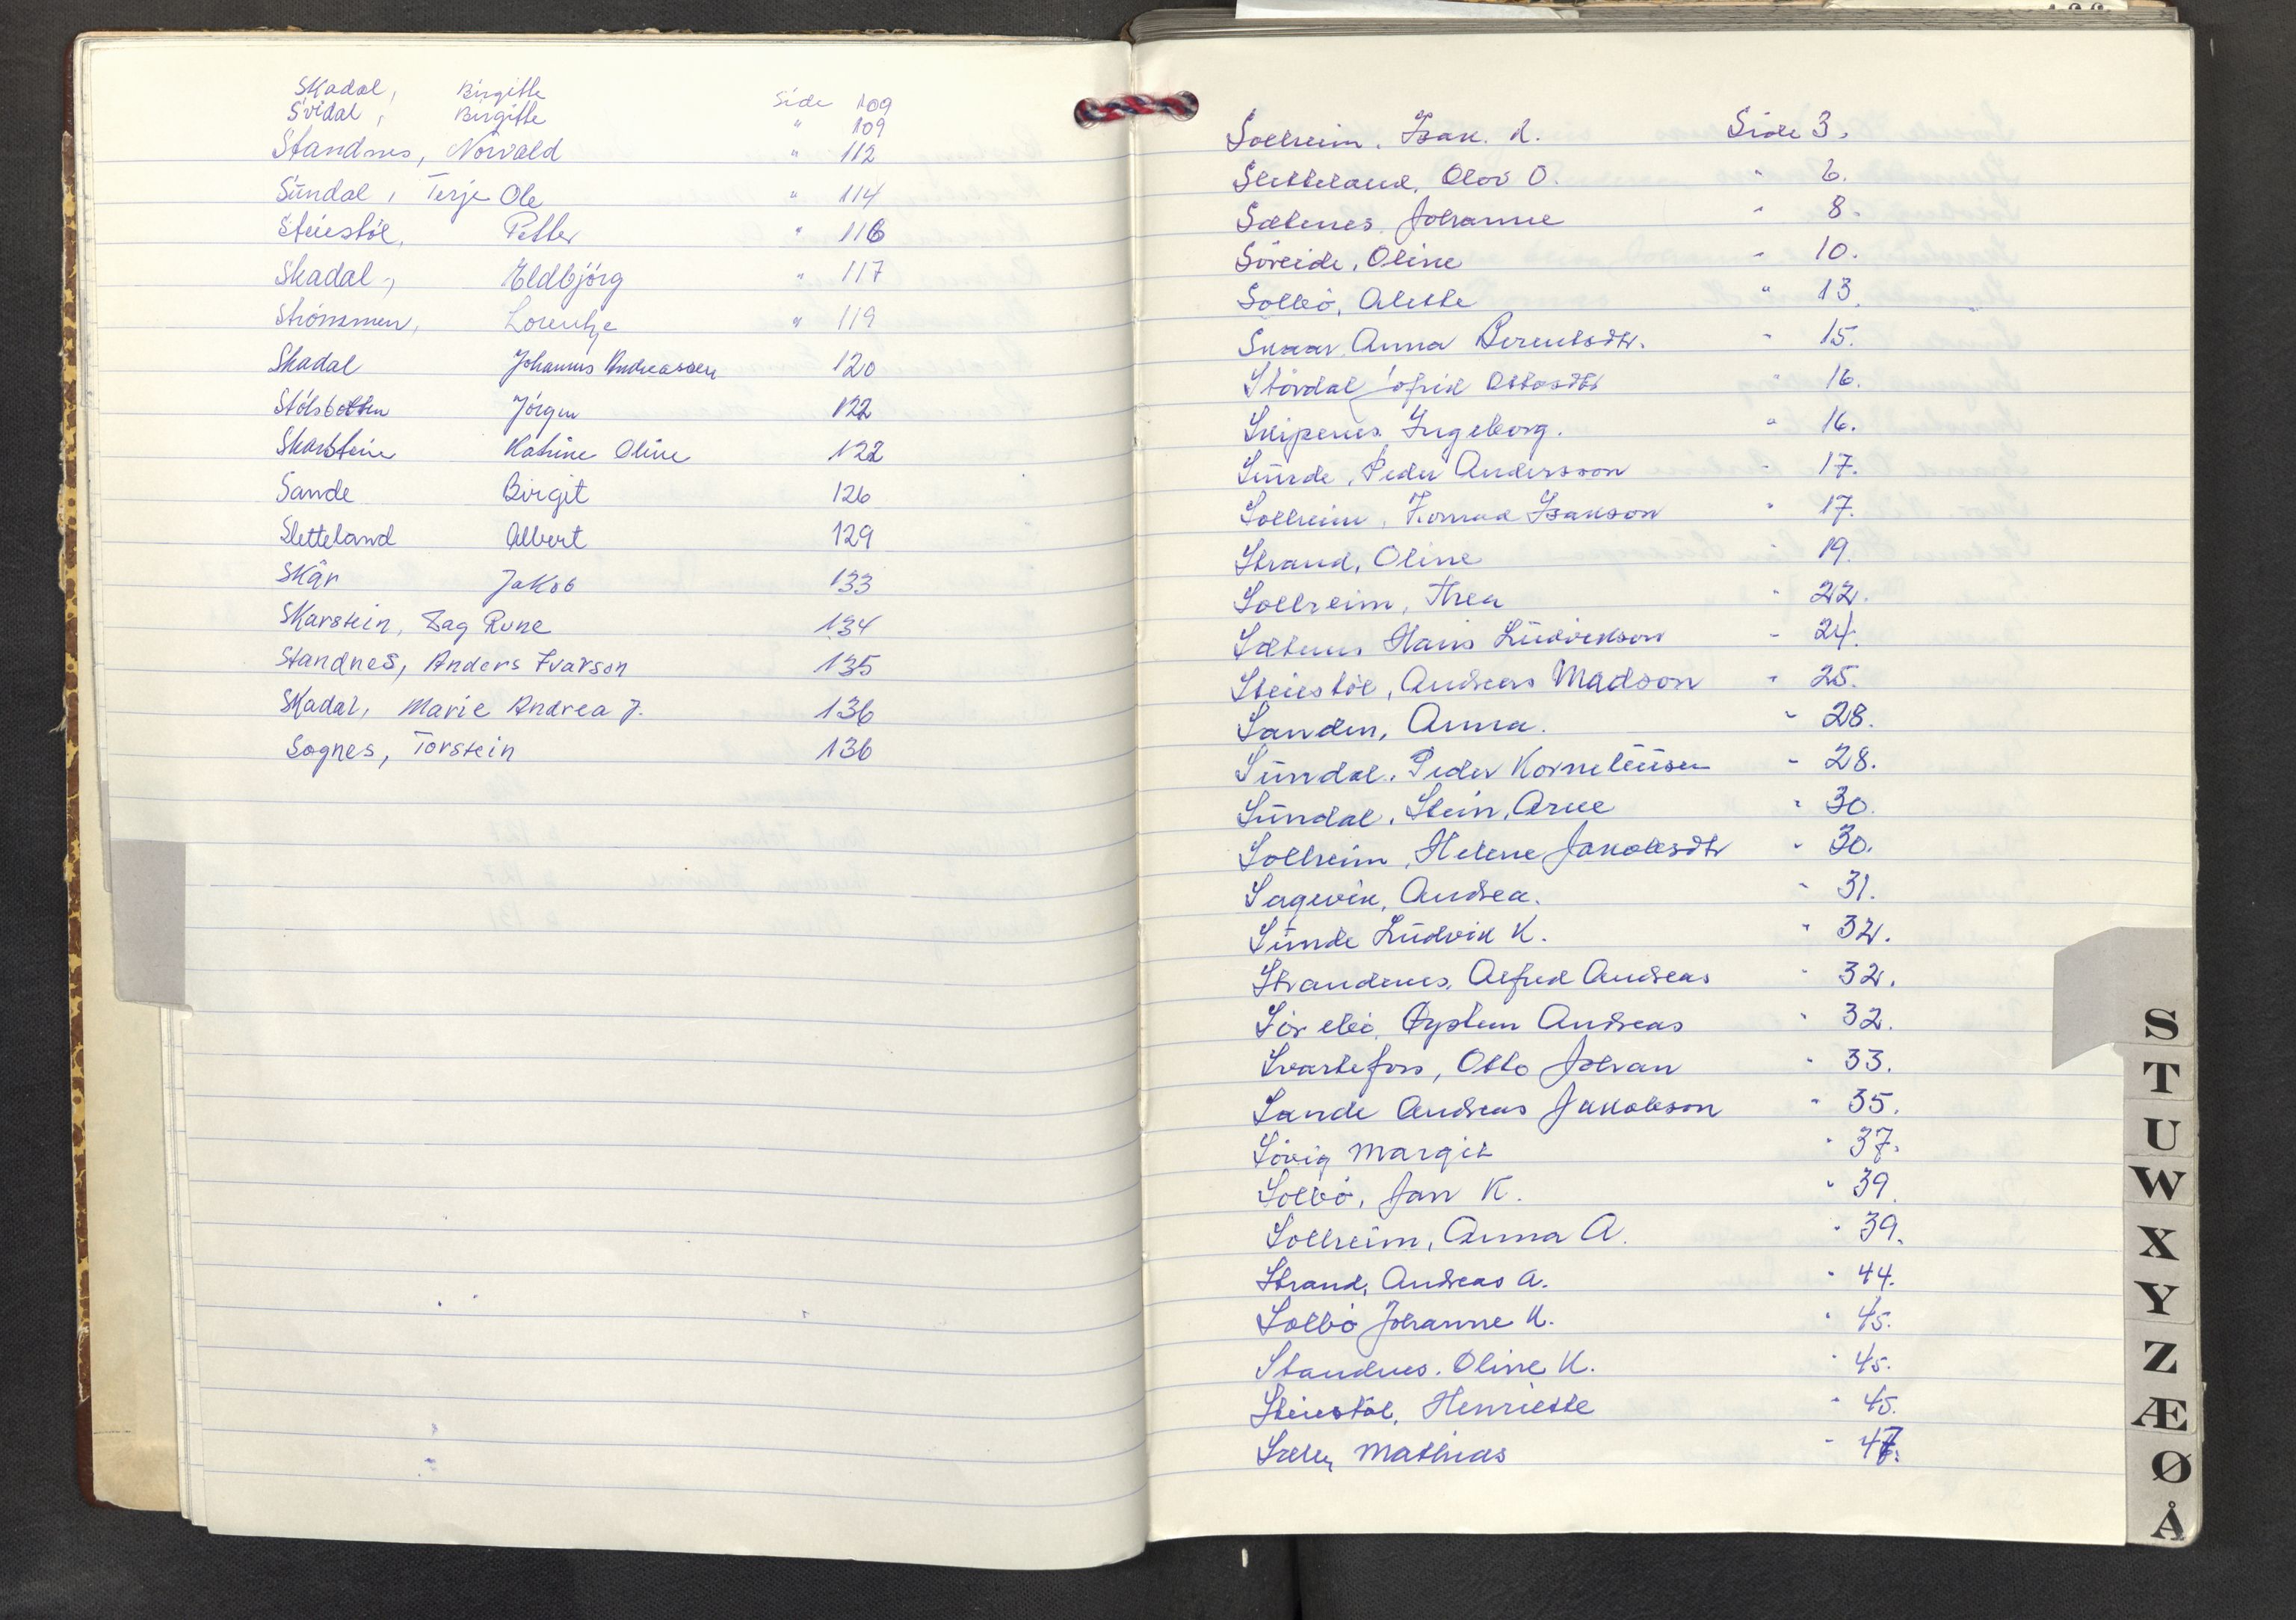 Skadal, Birgitte Side 109
Svidal, Birgitte " 109
Standnes, Norvald " 112
Sundal, Terje Ole " 114
Steiestøl, Petter " 116
Skadal, Eldbjørg " 117
Strömmen, Lorentze " 119
Skadal Johannes Andreassen 120
Stølsbotten Jörgen 122
Skarstein Katrine Oline 122
Sande Birgit 126
Sletteland Albert 129
Skår Jakob 133
Skarstein, Dag Rune 134
Standnes, Anders Ivarson 135
Skadal, Marie Andrea J. 136
Sognes, Torstein 136
Solheim, Isak. R. Side 3.
Sletteland, Olav O. " 6.
Sætenes, Johanne " 8.
Söreide, Oline " 10.
Solbö, Alette " 13.
Skaar Anna Berentsdtr. " 15.
Stördal Jofrid Ottosdtr " 16.
Skipenes Ingeborg. " 16.
Sunde, Peder Andersson " 17.
Solheim, Konrad Isakson " 17.
Strand, Oline " 19.
Solheim, Thea " 22.
Sætenes Hans Ludvikson " 24.
Steiestöl, Andreas Madson " 25.
Sanden, Anna. " 28.
Sundal, Peder Korneliusen " 28.
Sundal, Stein, Arne " 30.
Solheim, Helene Jakobsdtr " 30.
Sagevik, Andrea. " 31.
Sunde Ludvik K. " 32.
Strandenes, Alfred Andreas " 32.
Sörebö, Øystein Andreas " 32.
Svartefoss, Otto Johan " 33.
Sande Andreas Jakobson " 35.
Sövig Margit " 37.
Solbö, Jan K. " 39.
Solheim, Anna A. " 39.
Strand, Andreas A. " 44.
Solbö Johanne K. " 45.
Standnes, Oline K. " 45.
Steiestöl, Henriette " 45.
Mathias " 47.
S
T
U
W
X
Y
Z
Æ
Ø
Å